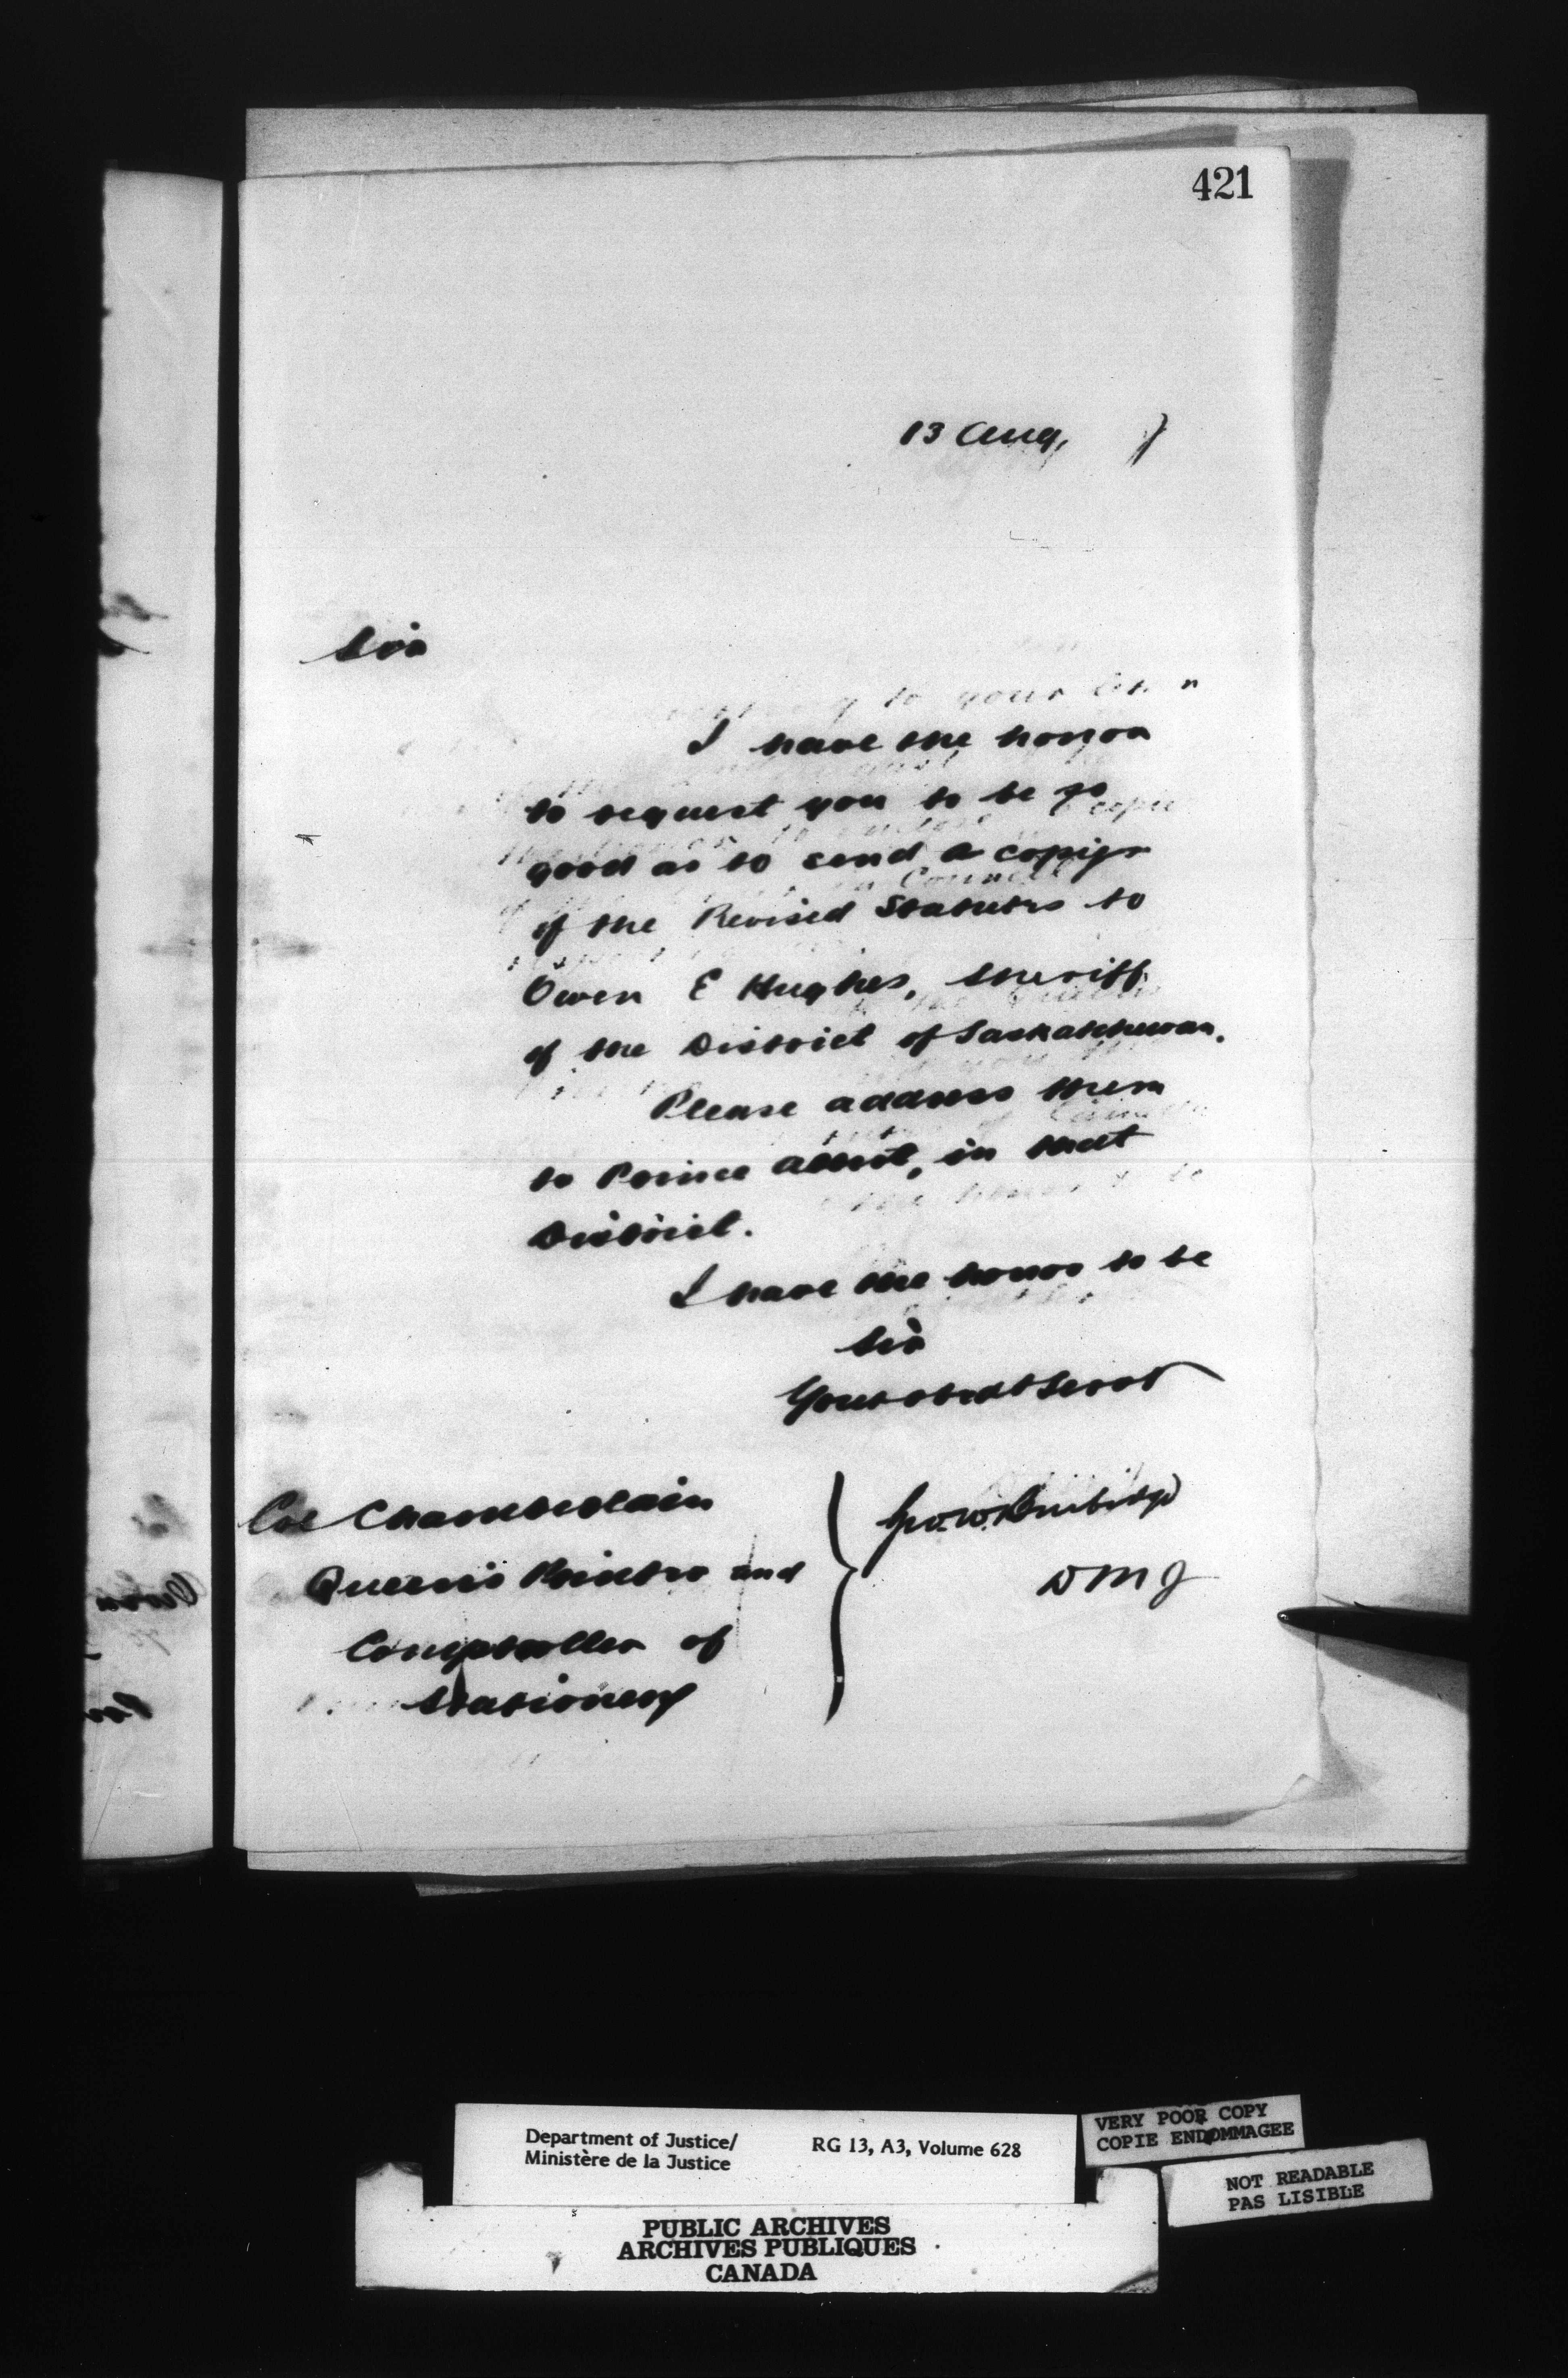 421
13 Aug, 7
Sir
I have the honor
to request you to be so
good as to send a copy
of the Revised Statutes to
Owen E Hughes, Sheriff
of the District of Saskatchewan.
Please address them
to Prince Albert, in that
District.
I have the honor to be
Sir
Your obedt Servt
Geo. W. Burbidge
D M J
Col Chamberlain
Queen's Printer and
Comptroller of
Stationery
Department of Justice/
Ministère de la Justice
RG 13, A3, Volume 628
VERY POOR COPY
COPIE ENDOMMAGEE
NOT READABLE
PAS LISIBLE
PUBLIC ARCHIVES
ARCHIVES PUBLIQUES
CANADA